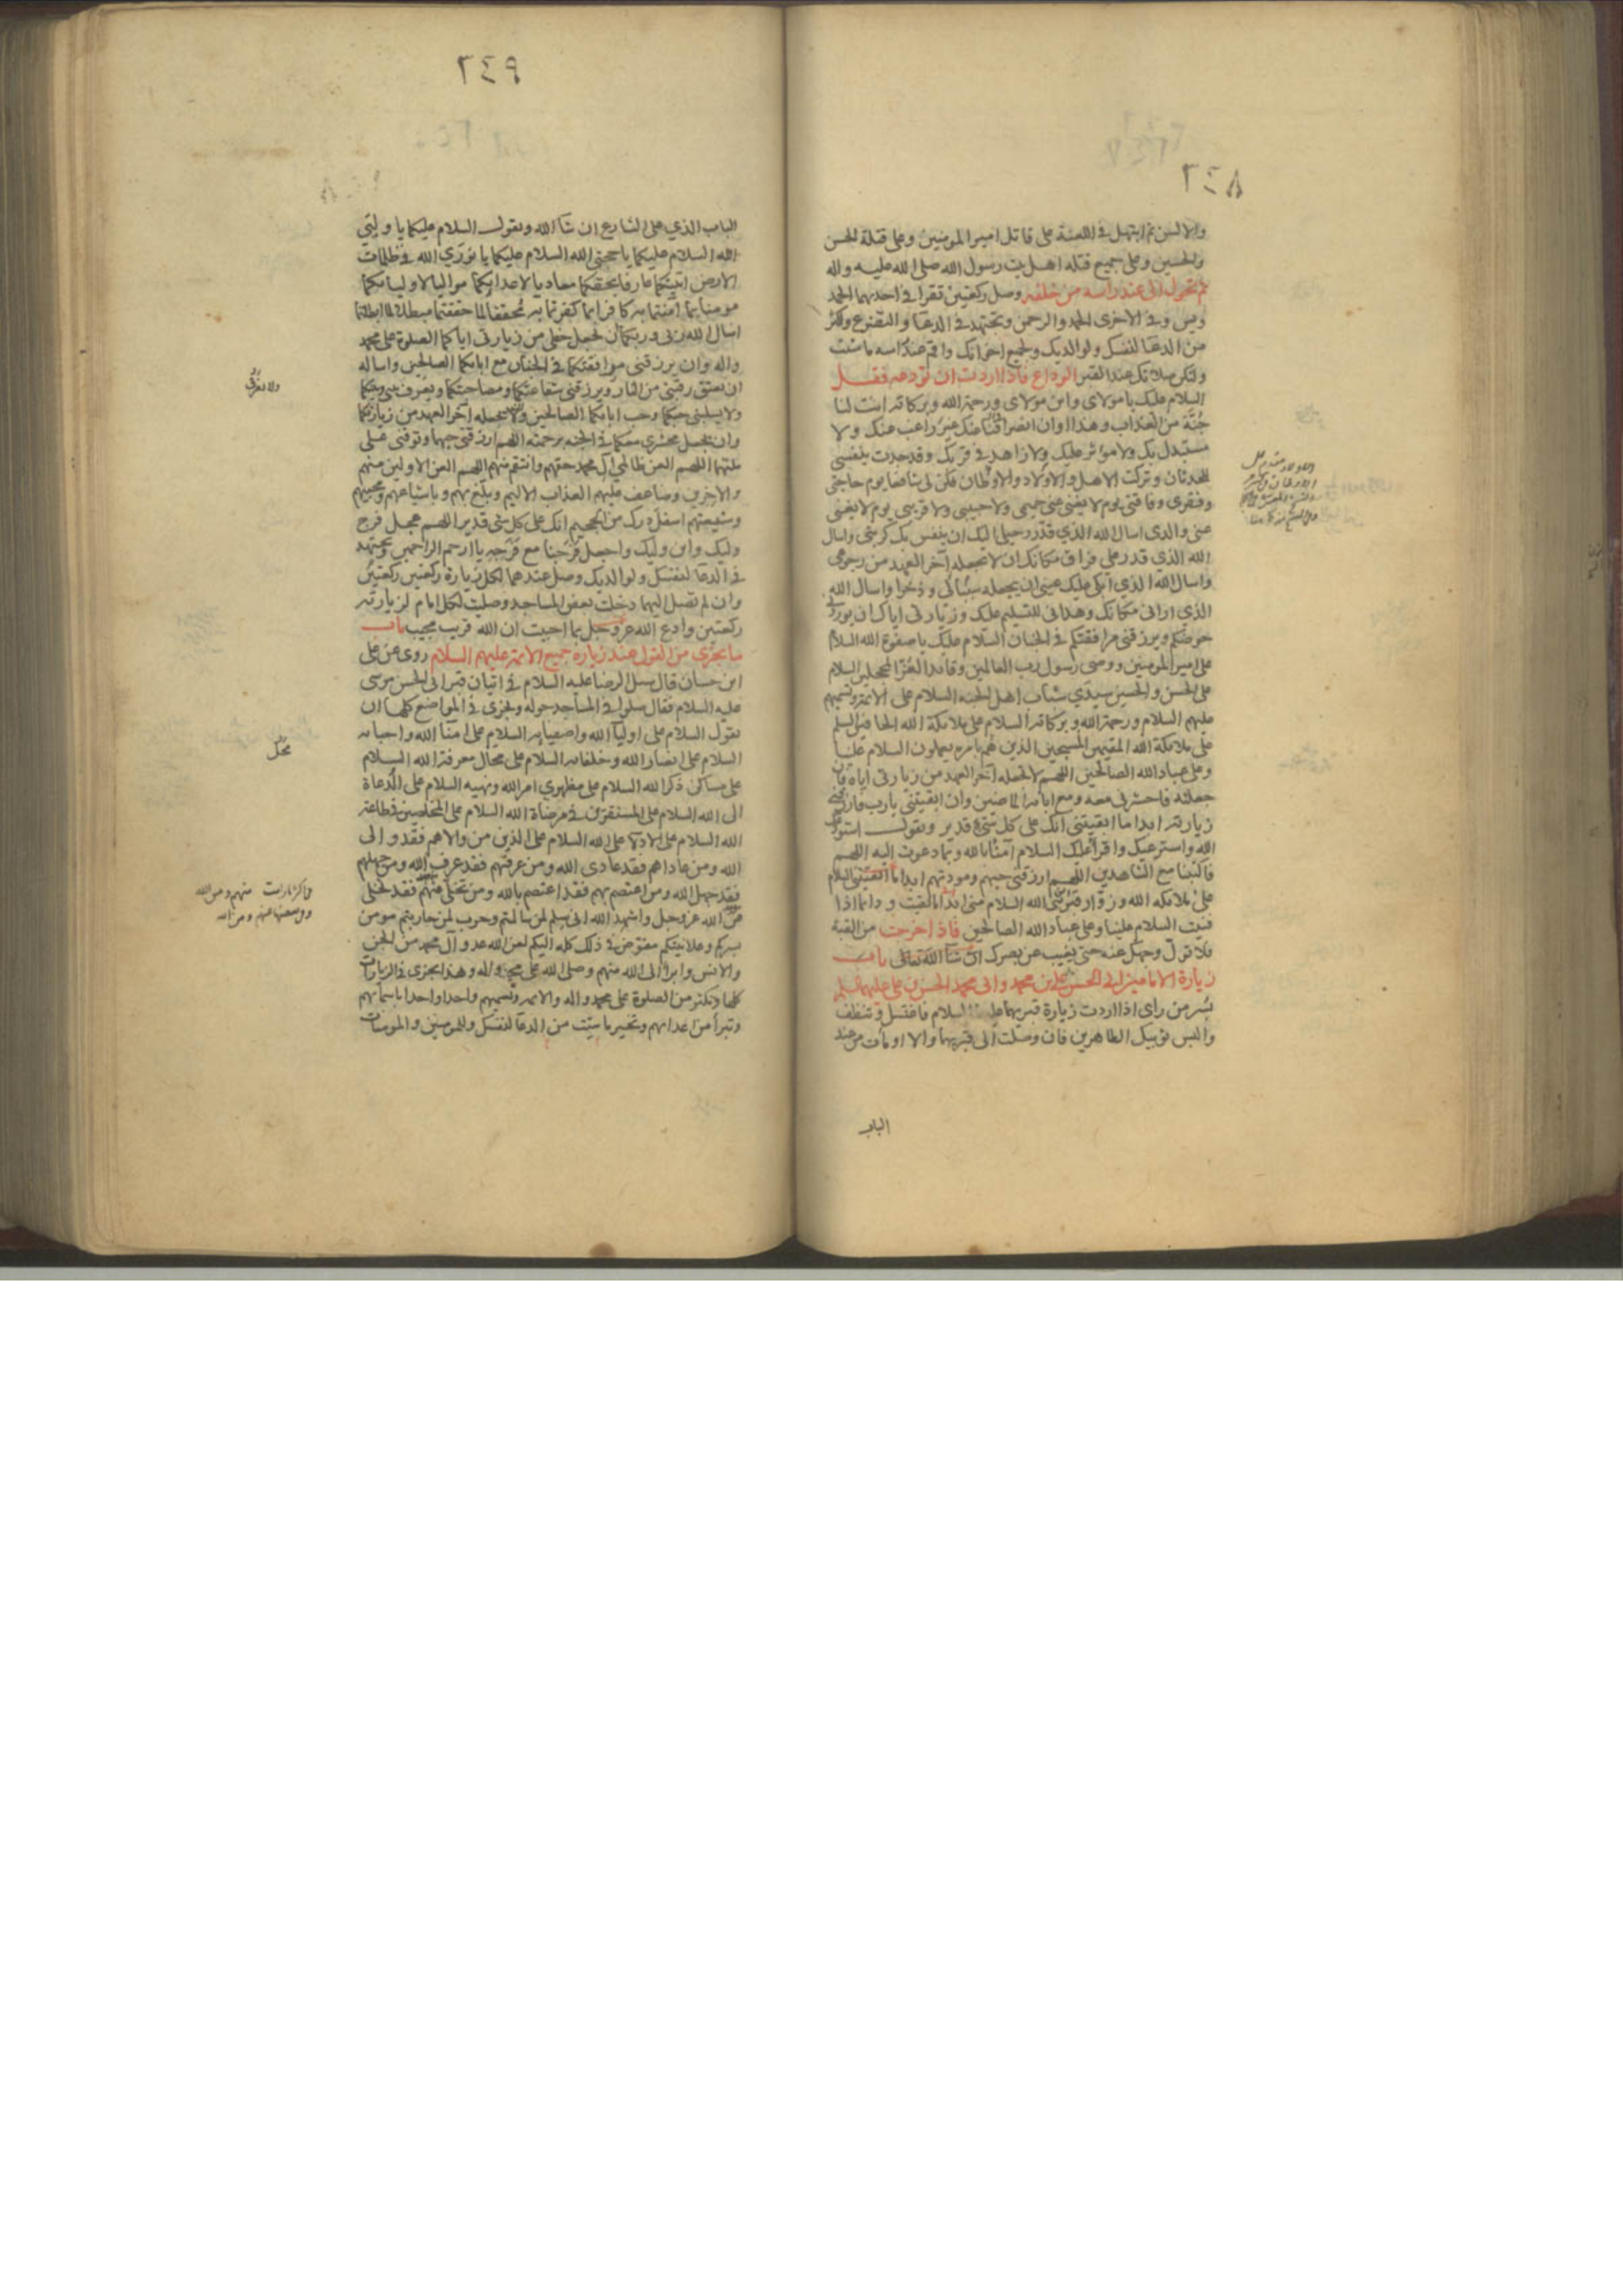 ٢٤٨
والالسن ثم ابتهل في اللعنة على قاتل امير المومنين وعلى قتلة الحسن
والحسين وعلى جميع قتلة اهل بيت رسول الله صلى الله عليه واله
ثم تحول الى عند راسه من خلفه وصل ركعتين تقرا في احديهما الحمد
ويس وفي الاخرى الحمد والرحمن وتجتهد في الدعا والتضرع واكثر
من الدعا لنفسك ولوالديك ولجميع اخوانك واقم عند راسه ما شئت
ولتكن صلاتك عند القبر الوداع فاذا اردت ان تودعه فقل
السلام عليك يا مولاى وابن مولاى ورحمة الله وبركاته انت لنا
جُنَّة من العذاب وهذا اوان انصرافنا عنك غير راغب عنك ولا
مستبدل بك ولا موثر عليك ولا زاهد في قربك وقد جدت بنفسى
للحدثان وتركت الاهل والاولاد والاوطان فكن لى شافعا يوم حاجتى
وفقرى وفاقتى يوم لا يغنى عنى حميمى ولا حبيبى ولا قريبى يوم لا يغنى
عنى والدى اسال الله الذي قدّر رحيلى اليك ان ينفس بك كربتى واسال
الله الذي قدر على فراق مكانك ان لا تجعله آخر العهد من رجوعى
واسال الله الذي ابكى عليك عينى ان يجعله سببًا لى وذخرا واسال الله
الذي ارانى مكانك وهدانى للتسليم عليك وزيارتى اياك ان يوردنى
حوضكم ويرزقنى مرافقتكم في الجنان السلام عليك يا صفوة الله السلام
على امير المومنين ووصى رسول رب العالمين وقائد الغر المحجلين السلام
على الحسن والحسين سيدَي شباب اهل الجنه السلام على الائمة وتسميهم
عليهم السلام ورحمة الله وبركاته السلام على ملائكة الله الحافين السلم
على ملائكة الله المقيمين المسبحين الذين هُم بامره يعملون السلام علينا
وعلى عباد الله الصالحين اللهم لا تجعله آخر العهد من زيارتى اياه فان
جعلته فاحشرنى معه ومع ابائه الماضين وان ابقيتنى يا رب فارزقنى
زيارته ابدا ما ابقيتنى انك على كل شيء قدير وتقول استودعك
الله واسترعيك واقرأ عليك السلام آمنّا بالله وبما دعوت اليه اللهم
فاكتبنا مع الشاهدين اللهم ارزقنى حبهم ومودتهم ابدا ما ابقيتنى السلام
على ملائكه الله وزوّار قبر نبى الله السلام منى ابدا ما بقيت ودائما اذا
فنيت السلام علينا وعلى عباد الله الصالحين فاذا خرجت من القبة
فلا تولّ وجهك عنه حتى يغيب عن بصرك ان شا الله تعالى باب
زيارة الامامين ابى الحسن على بن محمد وابى محمد الحسن بن على عليهما السلم
بسُر من راى اذا اردت زيارة قبريهما عليهما السلام فاغتسل وتنظف
والبس ثوبيك الطاهرين فان وصلت الى قبريهما والا اومأت من عند
الباب
٢٤٩
الباب الذي على الشارع ان شا الله وتقول السلام عليكما يا وليّي
الله السلام عليكما يا حجتي الله السلام عليكما يا نورَي الله في ظلمات
الارض اتيتكما عارفا بحقكما معاديا لاعدائكما مواليا لاوليائكما
مومنا بما آمنتما به كافرا بما كفرتما به مُحققا لما حققتما مبطلا لما ابطلتما
اسال الله ربى وربكما ان يجعل حظى من زيارتى اياكما الصلوة على محمد
واله وان يرزقنى مرافقتكما في الجنان مع ابائكما الصالحين واساله
ان يعتق رقبتى من النار ويرزقنى شفاعتكما ومصاحبتكما ويعرف بينى وبينكما
ولا يسلبنى حبكما وحب ابائكما الصالحين ولا يجعله آخر العهد من زيارتكما
وان يجعل محشرى معكما في الجنه برحمته اللهم ارزقنى حبهما وتوفنى على
ملتهما اللهم العن ظالمى آل محمد حقهم وانتقم منهم اللهم العن الاولين منهم
والاخرين وضاعف عليهم العذاب الاليم وبلّغ بهم وباشياعهم ومحبيهم
وشيعتهم اسفل درك من الجحيم انك على كل شى قدير اللهم عجل فرج
وليك وابن وليك واجعل فرجنا مع فرَجه يا ارحم الراحمين وتجتهد
في الدعا لنفسك ولوالديك وصل عندهما لكل زيارة ركعتين ركعتين
وان لم تصل اليهما دخلت بعض المساجد وصليت لكل امام لزيارته
ركعتين وادع الله عز وجل بما احببت ان الله قريب مجيب باب
ما يجزى من القول عند زيارة جميع الائمة عليهم السلام روى عن على
ابن حسان قال سئل الرضا عليه السلام في اتيان قبر ابى الحسن موسى
عليه السلام فقال صلوا في المساجد حوله ويجزى في المواضع كلها ان
تقول السلام على اوليآ الله واصفيائه السلام على امنآ الله واحبائه
السلام على انصار الله وخلفائه السلام على محال معرفة الله السلام
على مساكن ذكر الله السلام على مظهري امر الله ونهيه السلام على الدُعاة
الى الله السلام على المستقرين في مرضاة الله السلام على المخلصين في طاعة
الله السلام على الادلا على الله السلام على الذين من والاهم فقد والى
الله ومن عاداهم فقد عادى الله ومن عرفهم فقد عرف الله ومن جهلهم
فقد جهل الله ومن اعتصم بهم فقد اعتصم بالله ومن تخلى منهم فقد تخلى
من الله عز وجل واشهد الله انى سلم لمن سالمتم وحرب لمن حاربتم مومن
بسركم وعلانيتكم مفوّض في ذلك كله اليكم لعن الله عدو آل محمد من الجن
والانس وابرأ الى الله منهم وصلى الله على محمد واله وهذا يجزى في الزيارات
كلها وتكثر من الصلوة على محمد واله والائمة وتسميهم واحدا واحدا باسمائهم
وتبرأ من اعدائهم وتخير ما شئت من الدعا لنفسك وللمومنين والمومنات
ولا يفرق
محل